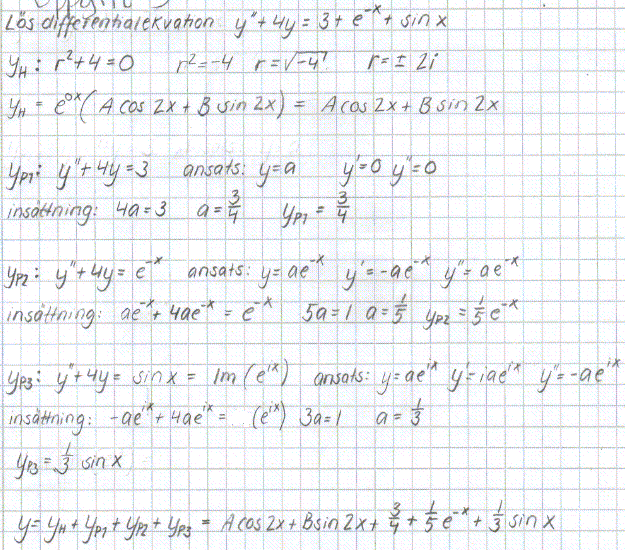 Lös differentialekvation y" + 4y = 3 + e^-x + sin x
y_H : r² + 4 = 0 r² = -4 r = √-4 r = ± 2i
y_H = e^0x (A cos 2x + B sin 2x) = A cos 2x + B sin 2x
y_P1: y" + 4y = 3 ansats: y = a y' = 0 y" = 0
insättning: 4a = 3 a = 3/4 y_P1 = 3/4
y_P2: y" + 4y = e^-x ansats: y = ae^-x y' = -ae^-x y" = ae^-x
insättning: ae^-x + 4ae^-x = e^-x 5a = 1 a = 1/5 y_P2 = 1/5 e^-x
y_P3: y" + 4y = sin x = Im (e^ix) ansats: y = ae^ix y' = iae^ix y" = -ae^ix
insättning: -ae^ix + 4ae^ix = (e^ix) 3a = 1 a = 1/3
y_P3 = 1/3 sin x
y = y_H + y_P1 + y_P2 + y_P3 = A cos 2x + B sin 2x + 3/4 + 1/5 e^-x + 1/3 sin x